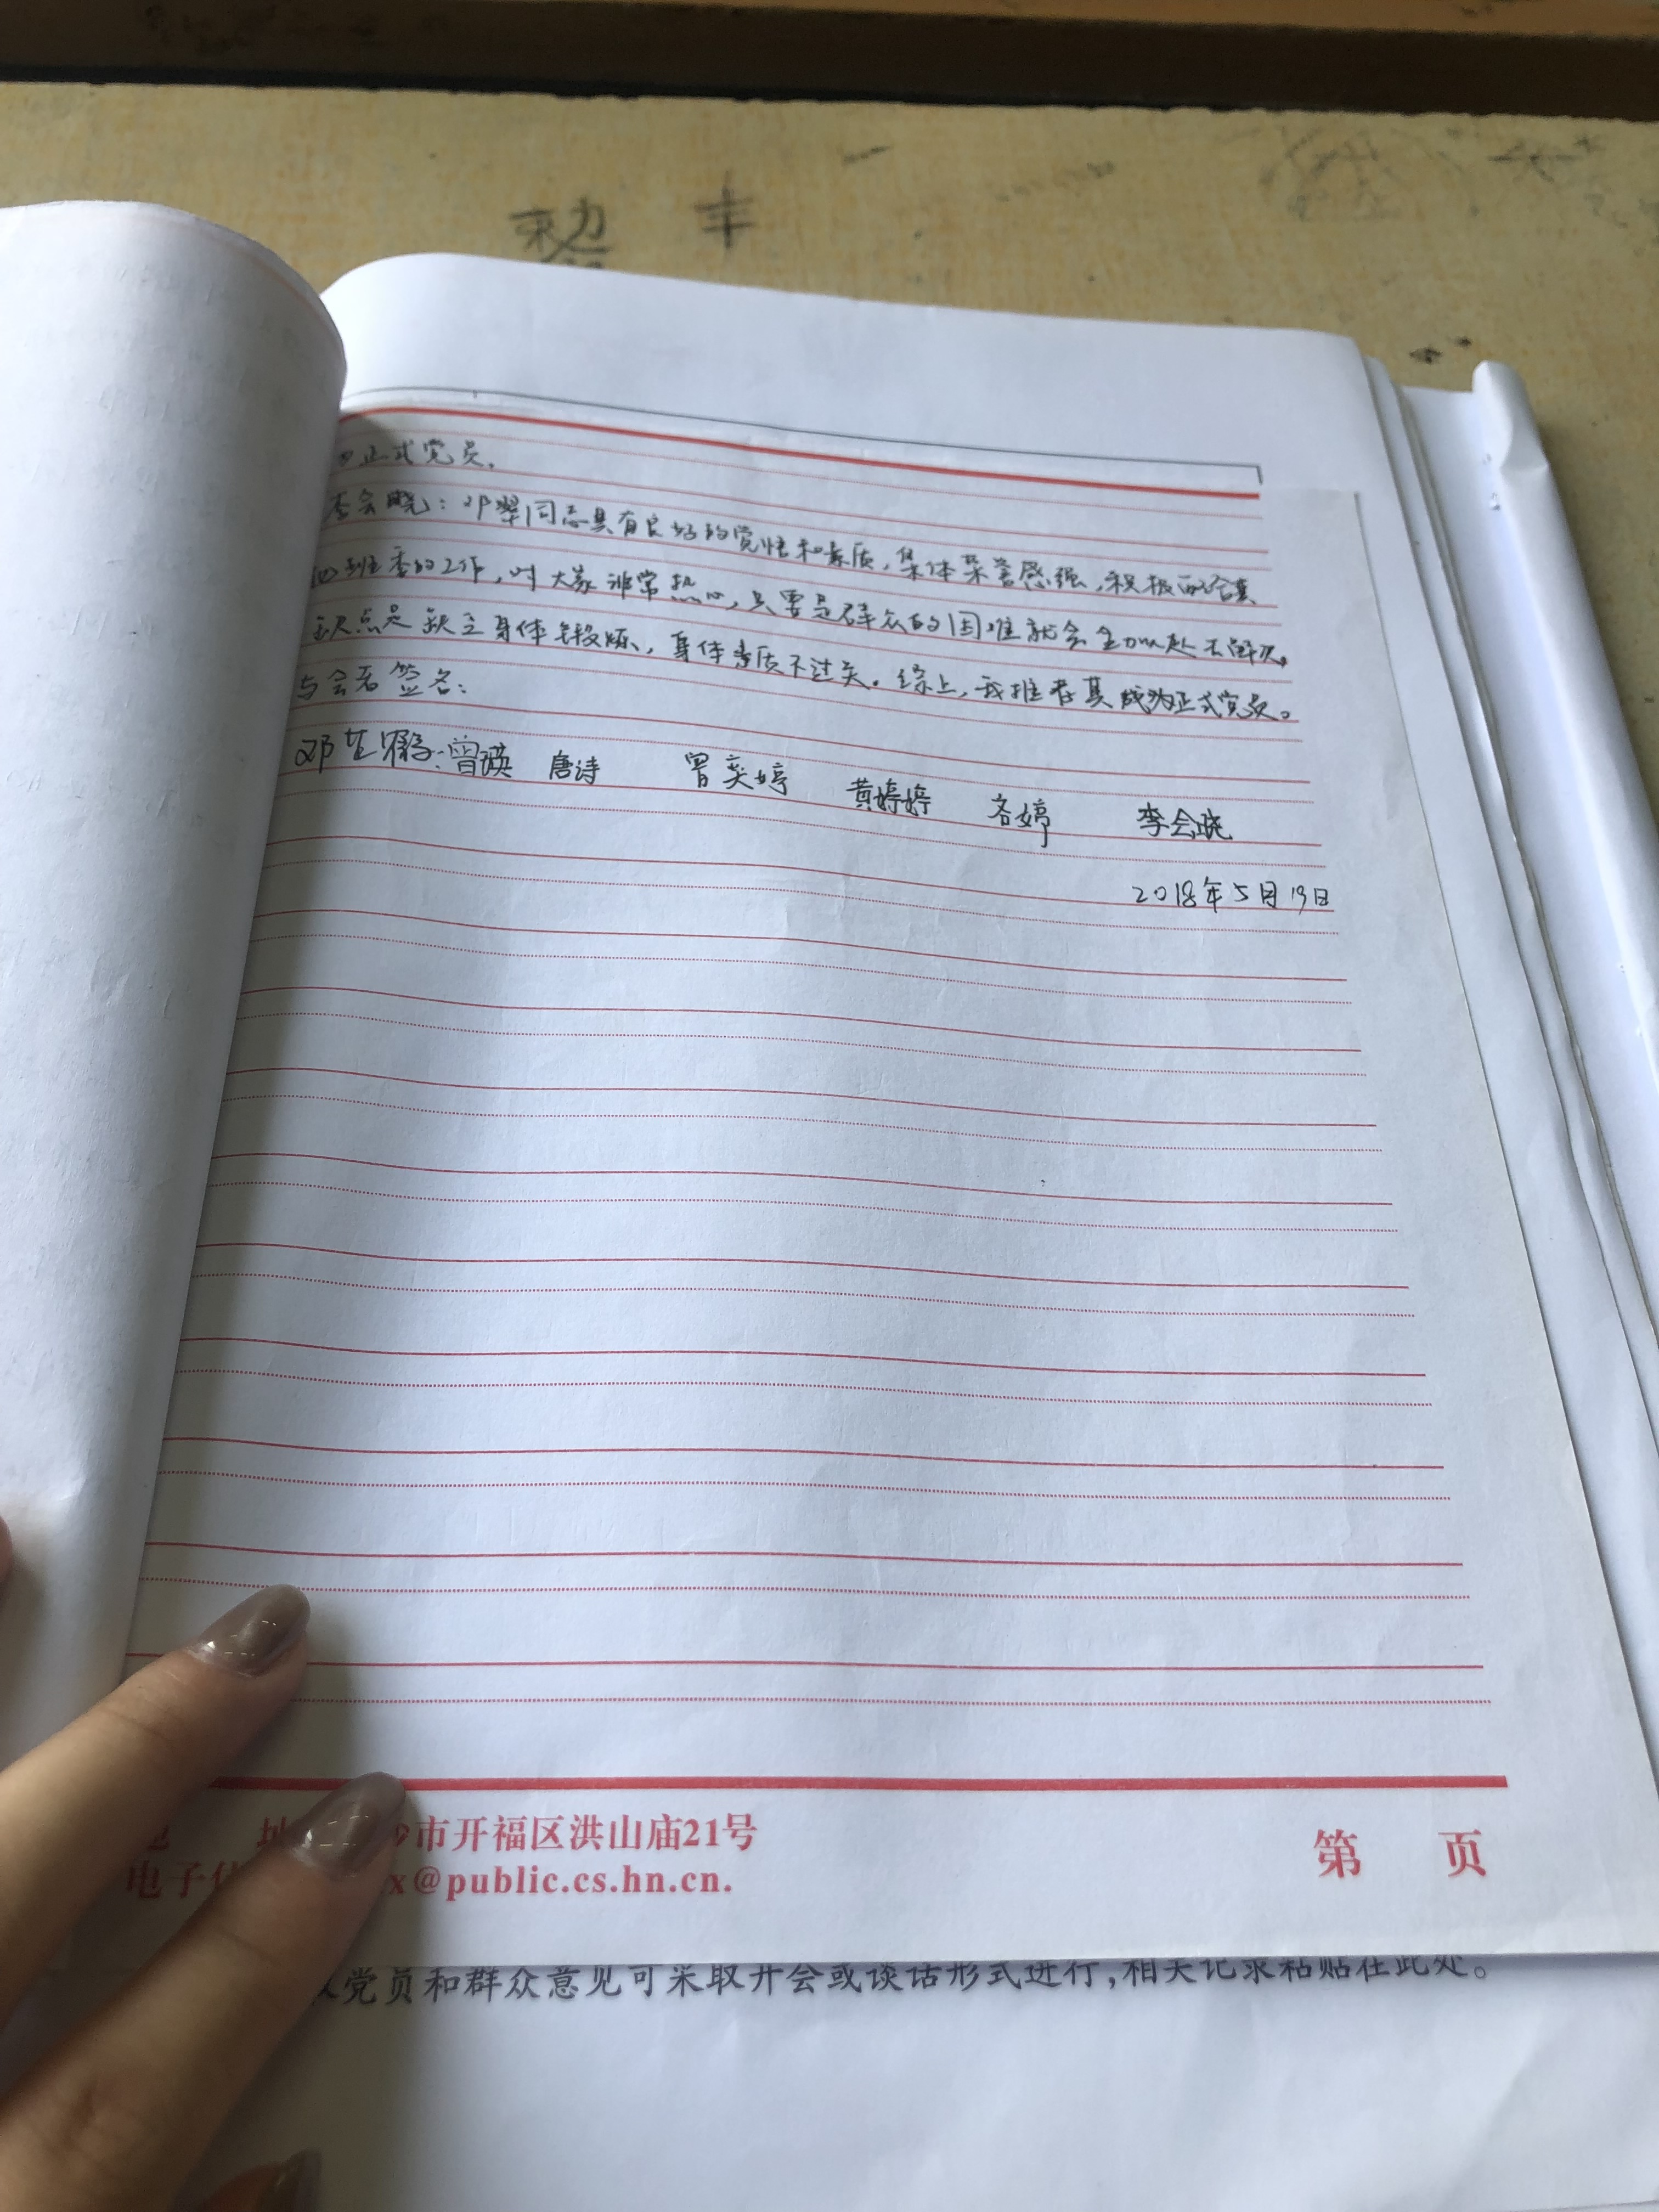 黎 丰
正式党员。
李会晓：邓翠同志具有良好的觉悟和素质，集体荣誉感强，积极配合其
他班委的工作，对大家非常热心，只要是群众的困难就会全力以赴不留余。
缺点是缺乏身体锻炼，身体素质不过关。综上，我推荐其成为正式党员。
与会者签名：
邓芷 曾瑛 唐诗 曾奕婷 黄婷婷 婷 李会晓
2018年5月19日
市开福区洪山庙21号
第 页
电子 x@public.cs.hn.cn.
党员和群众意见可采取开会或谈话形式进行,相关记录粘贴在此处。